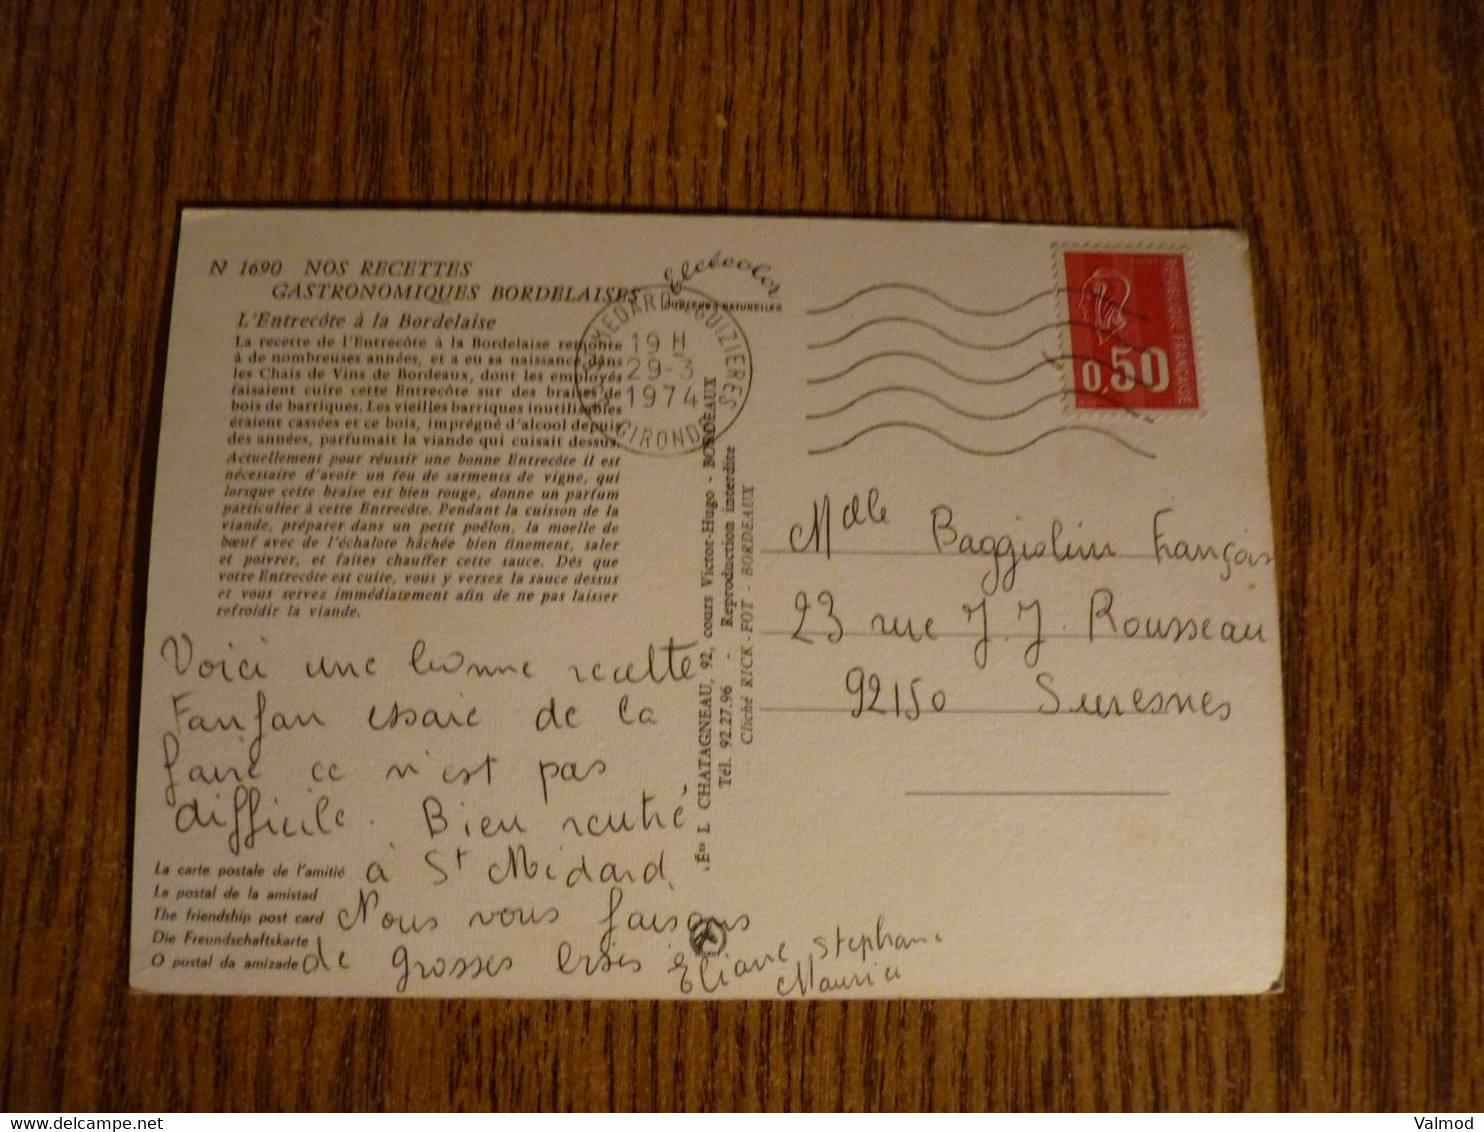 N 1690 NOS RECETTES
GASTRONOMIQUES BORDELAISES
L'Entrecôte à la Bordelaise
La recette de l'Entrecôte à la Bordelaise remonte
à de nombreuses années, et a eu sa naissance dans
les Chais de Vins de Bordeaux, dont les employés
faisaient cuire cette Entrecôte sur des braises de
bois de barriques. Les vieilles barriques inutilisables
étaient cassées et ce bois, imprégné d'alcool depuis
des années, parfumait la viande qui cuisait dessus.
Actuellement pour réussir une bonne Entrecôte il est
nécessaire d'avoir un feu de sarments de vigne, qui
lorsque cette braise est bien rouge, donne un parfum
particulier à cette Entrecôte. Pendant la cuisson de la
viande, préparer dans un petit poêlon, la moelle de
bœuf avec de l'échalote hâchée bien finement, saler
et poivrer, et faites chauffer cette sauce. Dès que
votre Entrecôte est cuite, vous y versez la sauce dessus
et vous servez immédiatement afin de ne pas laisser
refroidir la viande.
Voici une bonne recette
Fanfan essaie de la
faire ce n'est pas
difficile. Bien rentré
à St Médard.
Nous vous faisons
de grosses bises Eliane Stephane
Maurice
La carte postale de l'amitié
La postal de la amistad
The friendship post card
Die Freundschaftskarte
O postal da amizade
Éts L. CHATAGNEAU, 92, cours Victor-Hugo - BORDEAUX
Tél. 92.27.96 - Reproduction interdite
Cliché RICK-FOT - BORDEAUX
Elcécolor
COULEURS NATURELLES
MEDARD GUIZIERES
19 H
29-3
1974
GIRONDE
REPUBLIQUE FRANÇAISE
0,50
Mdlle Baggiolini François
23 rue J.J. Rousseau
92150 Suresnes
Valmod